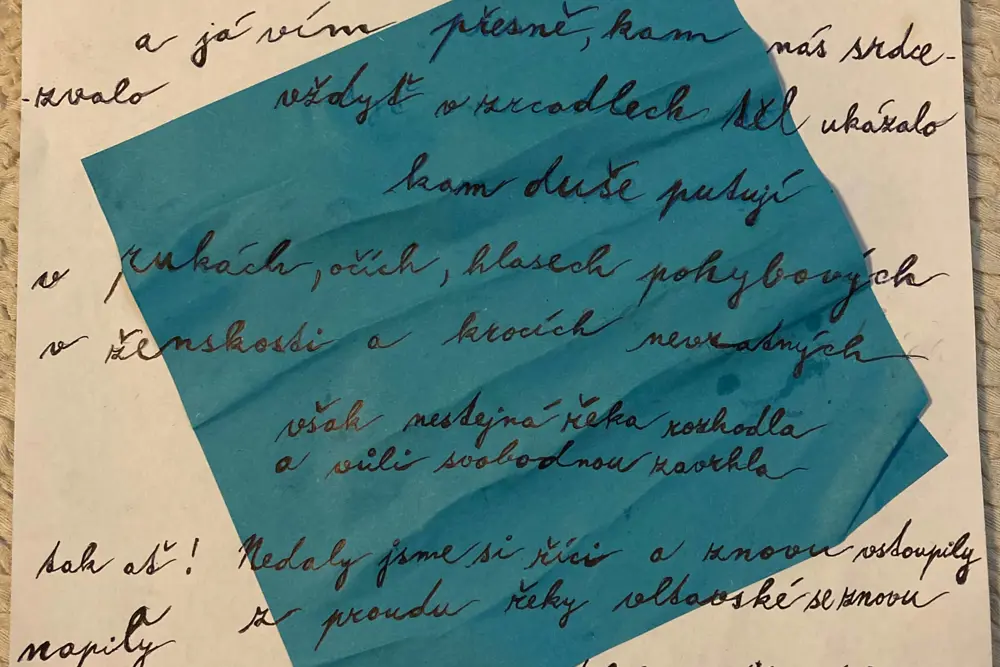 a já vím přesně, kam nás srdce-
-zvalo vždyť v zrcadlech těl ukázalo
kam duše putují
v rukách, očích, hlasech pohybových
v ženskosti a krocích nevratných
však nestejná řeka rozhodla
a vůli svobodnou zavrhla
tak ať! Nedaly jsme si říci a znovu vstoupily
a z proudu řeky vltavské se znovu
napily